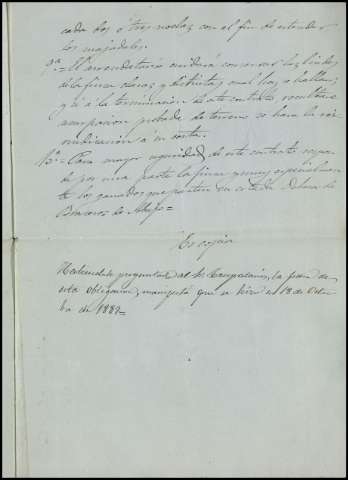 cada dos o tres noches con el fin de estender
los majadales.
9ª = El arrendatario cuidará conservar los lindes
de la finca claros y distintos cual hoy se hallan,
y si a la terminacion de este contrato resultare
usurpacion probada de terreno se hara la rei
vindicacion á su costa.
10ª = Para mayor seguridad de este contrato respon
de por una parte la finca y muy especialmen
te los ganados que pasten en esta
de =
Es copia
Habiendole preguntado al Sr la fecha de
esta obligacion, manifestó que se hizo en 18 de Octu
bre de 1887=